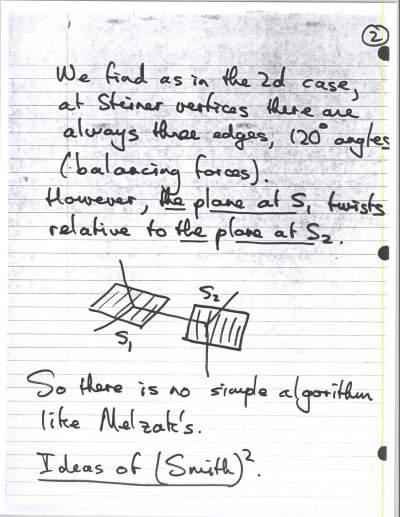 2
We find as in the 2d case,
at Steiner vertices there are
always three edges, 120° angles
(∴ balancing forces).
However, the plane at S₁ twists
relative to the plane at S₂.
S₂
S₁
So there is no simple algorithm
like Melzak's.
Ideas of (Smith)².